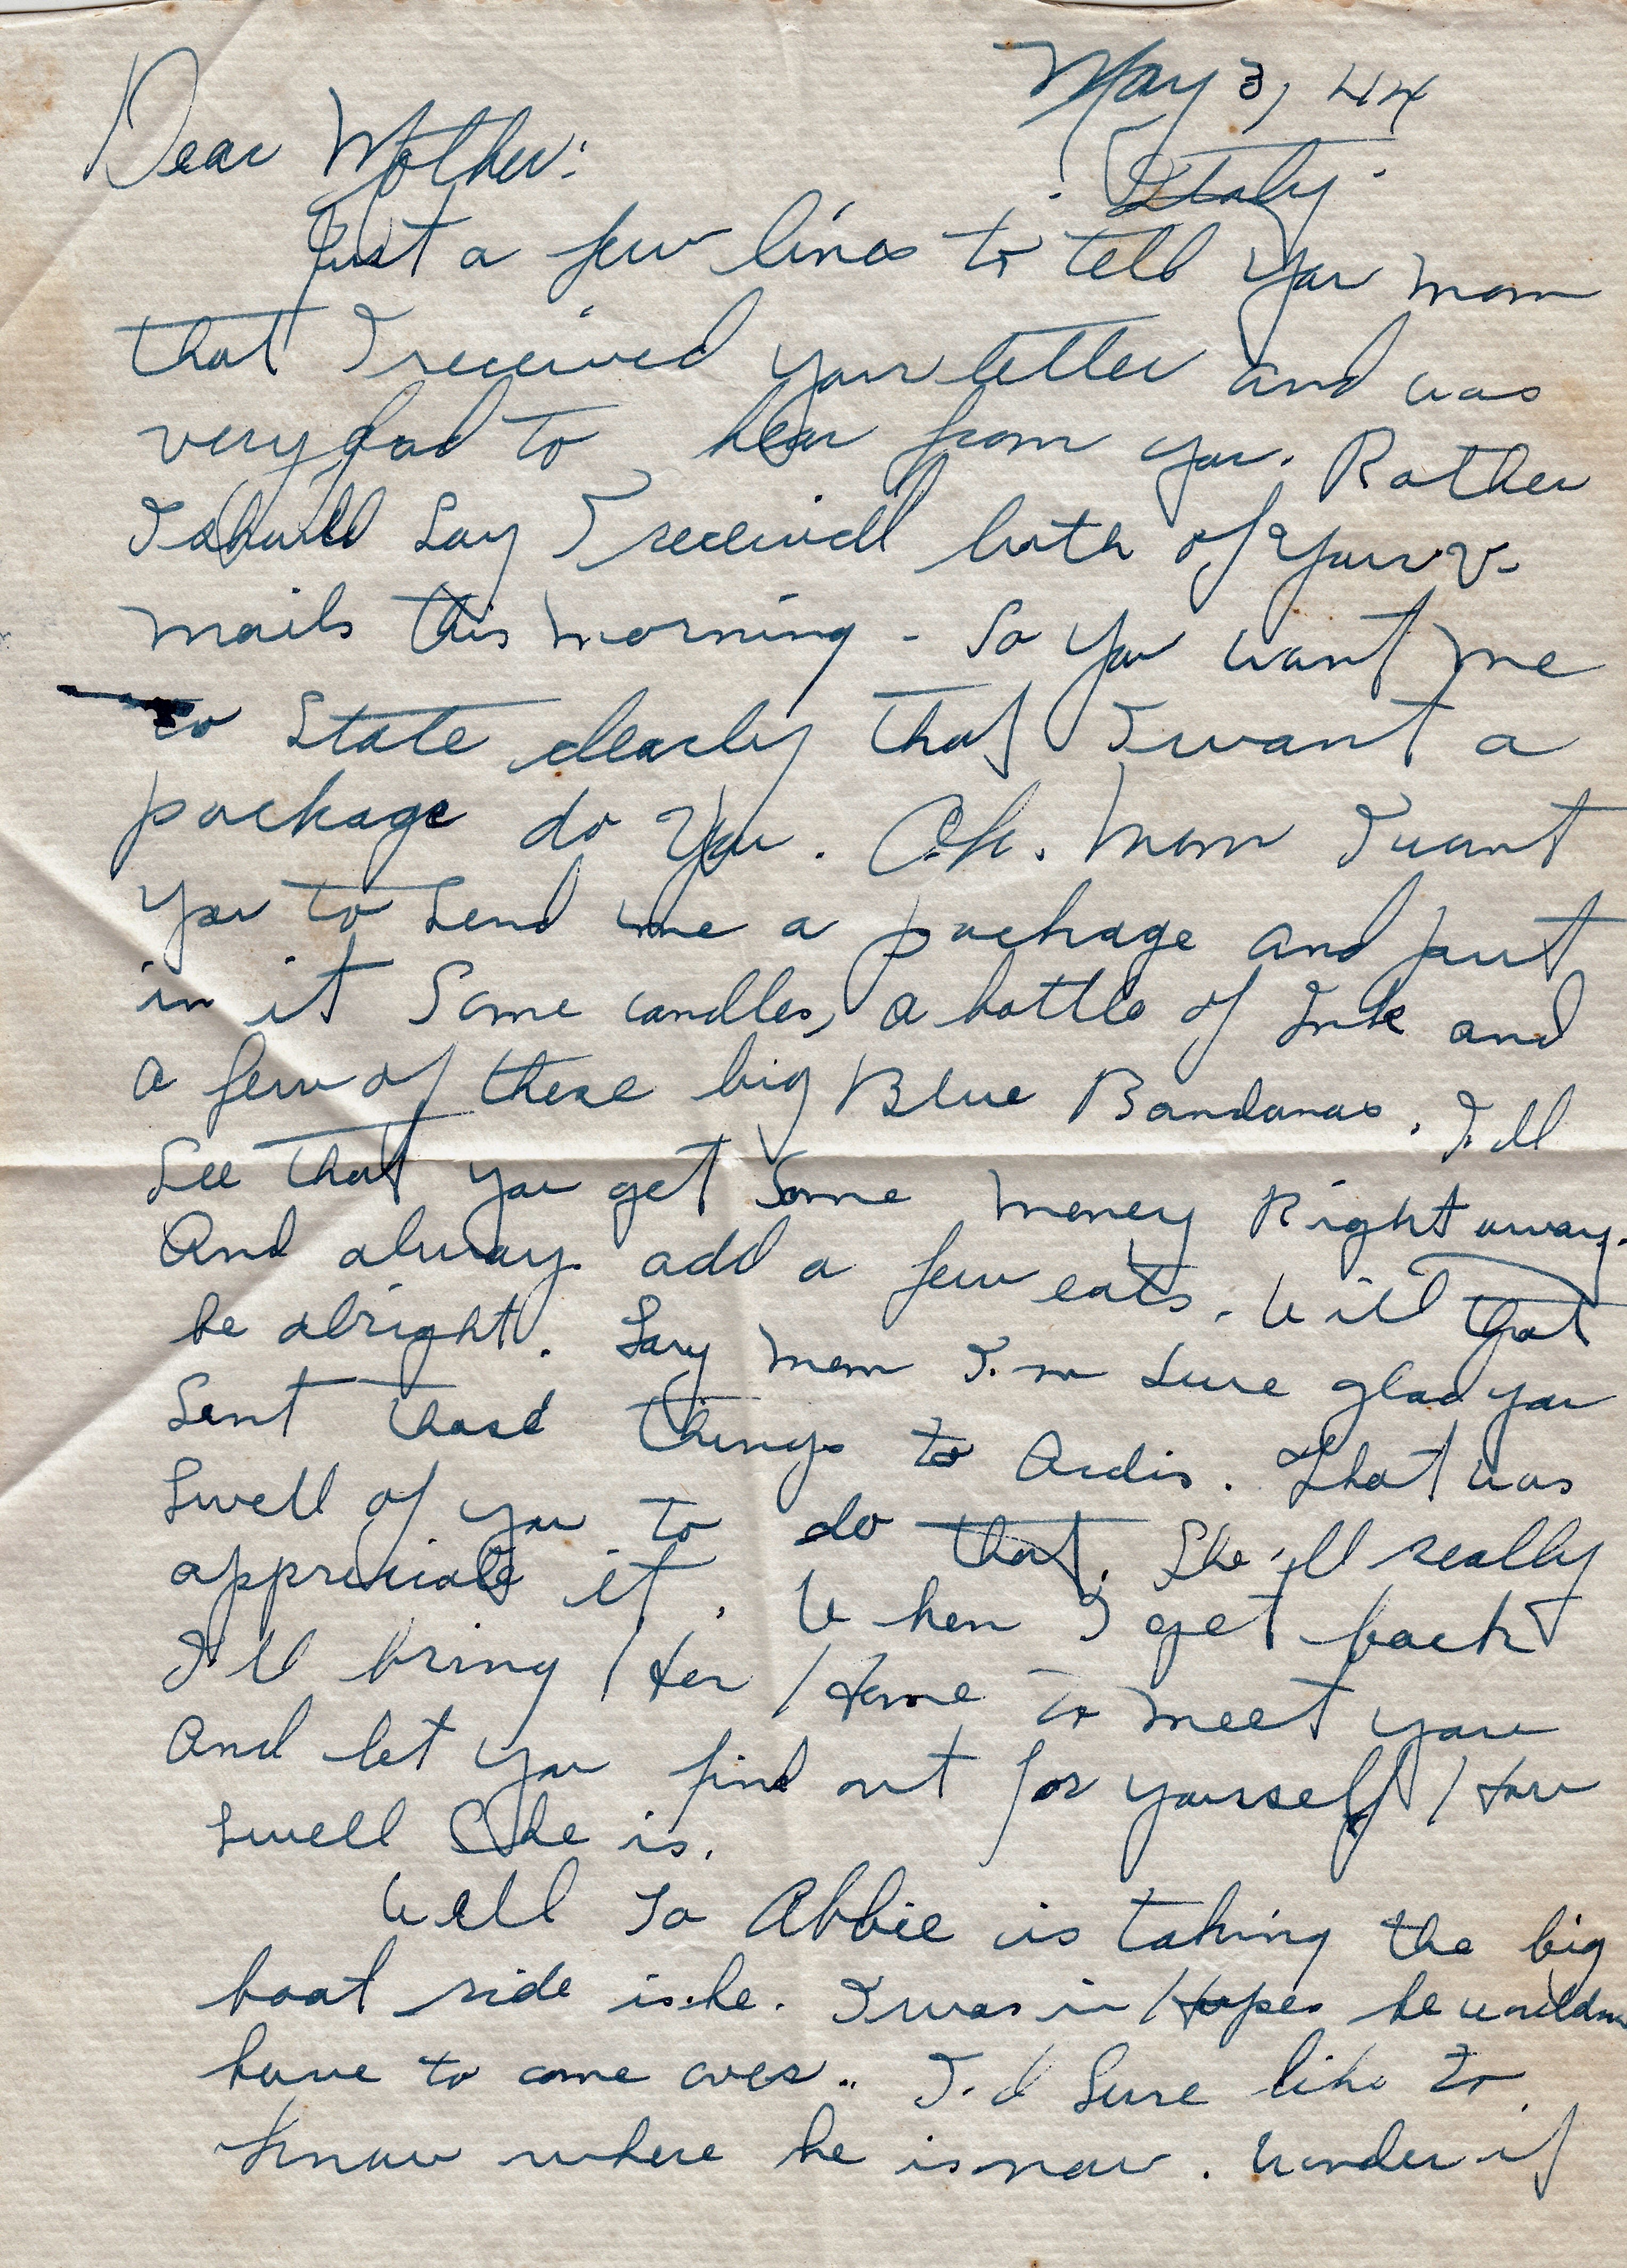 May 3, 44
Italy.
Dear Mother:
Just a few lines to tell you mom
that I received your letter and was
very glad to hear from you. Rather
I should say I received both of your V-
mails this morning - So you want me
to State clearly that I want a
package do you. O.k. Mom I want
you to send me a package and put
in it Some candles, a bottle of Ink and
a few of these big Blue Bandanas. I'll
See that you get Some money Right away.
And always add a few eats. Will that
be alright. Say Mom I'm sure glad you
Sent those things to Ardis. That was
Swell of you to do that. She'll really
appreciate it. When I get back
I'll bring Her Home to meet you
And let you find out for yourself How
Swell She is.
Well So Abbie is taking the big
boat ride is he. I was in Hopes he wouldn
have to come over.. I'd Sure like to
know where he is now. Wonder if